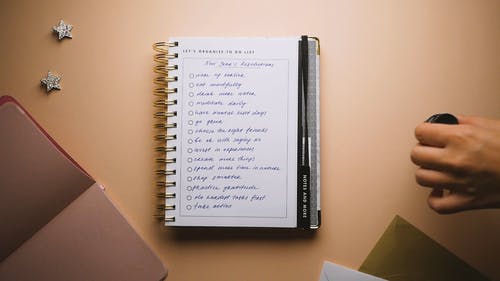 LET'S ORGANISE-TO DO LIST
New Year's Resolutions
wake up earlier
eat mindfully
drink more water
meditate daily
have mental rest days
go green
choose the right friends
be ok with saying no
invest in experiences
create more things
spend more time in nature
shop smarter
practice gratitude
do hardest tasks first
take action
NOTES AND MORE